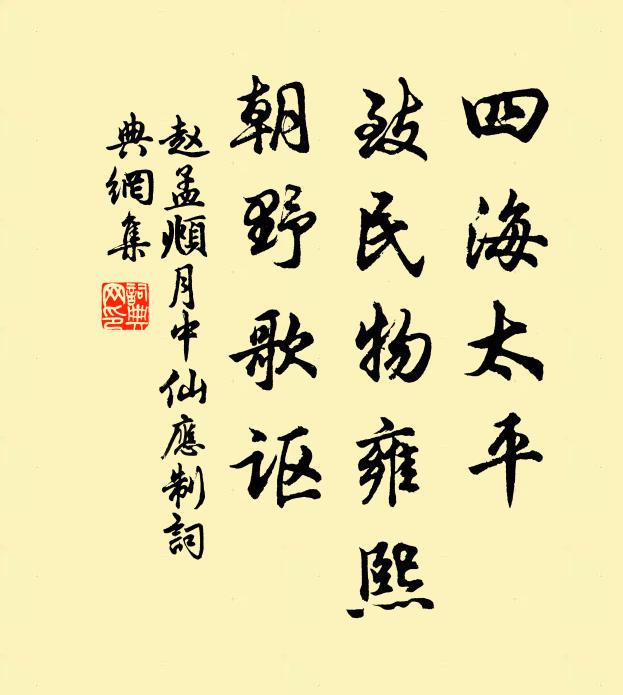 四海太平
致民物雍熙
朝野歌讴
赵孟頫月中仙應制詞
典網集
詞典
网印